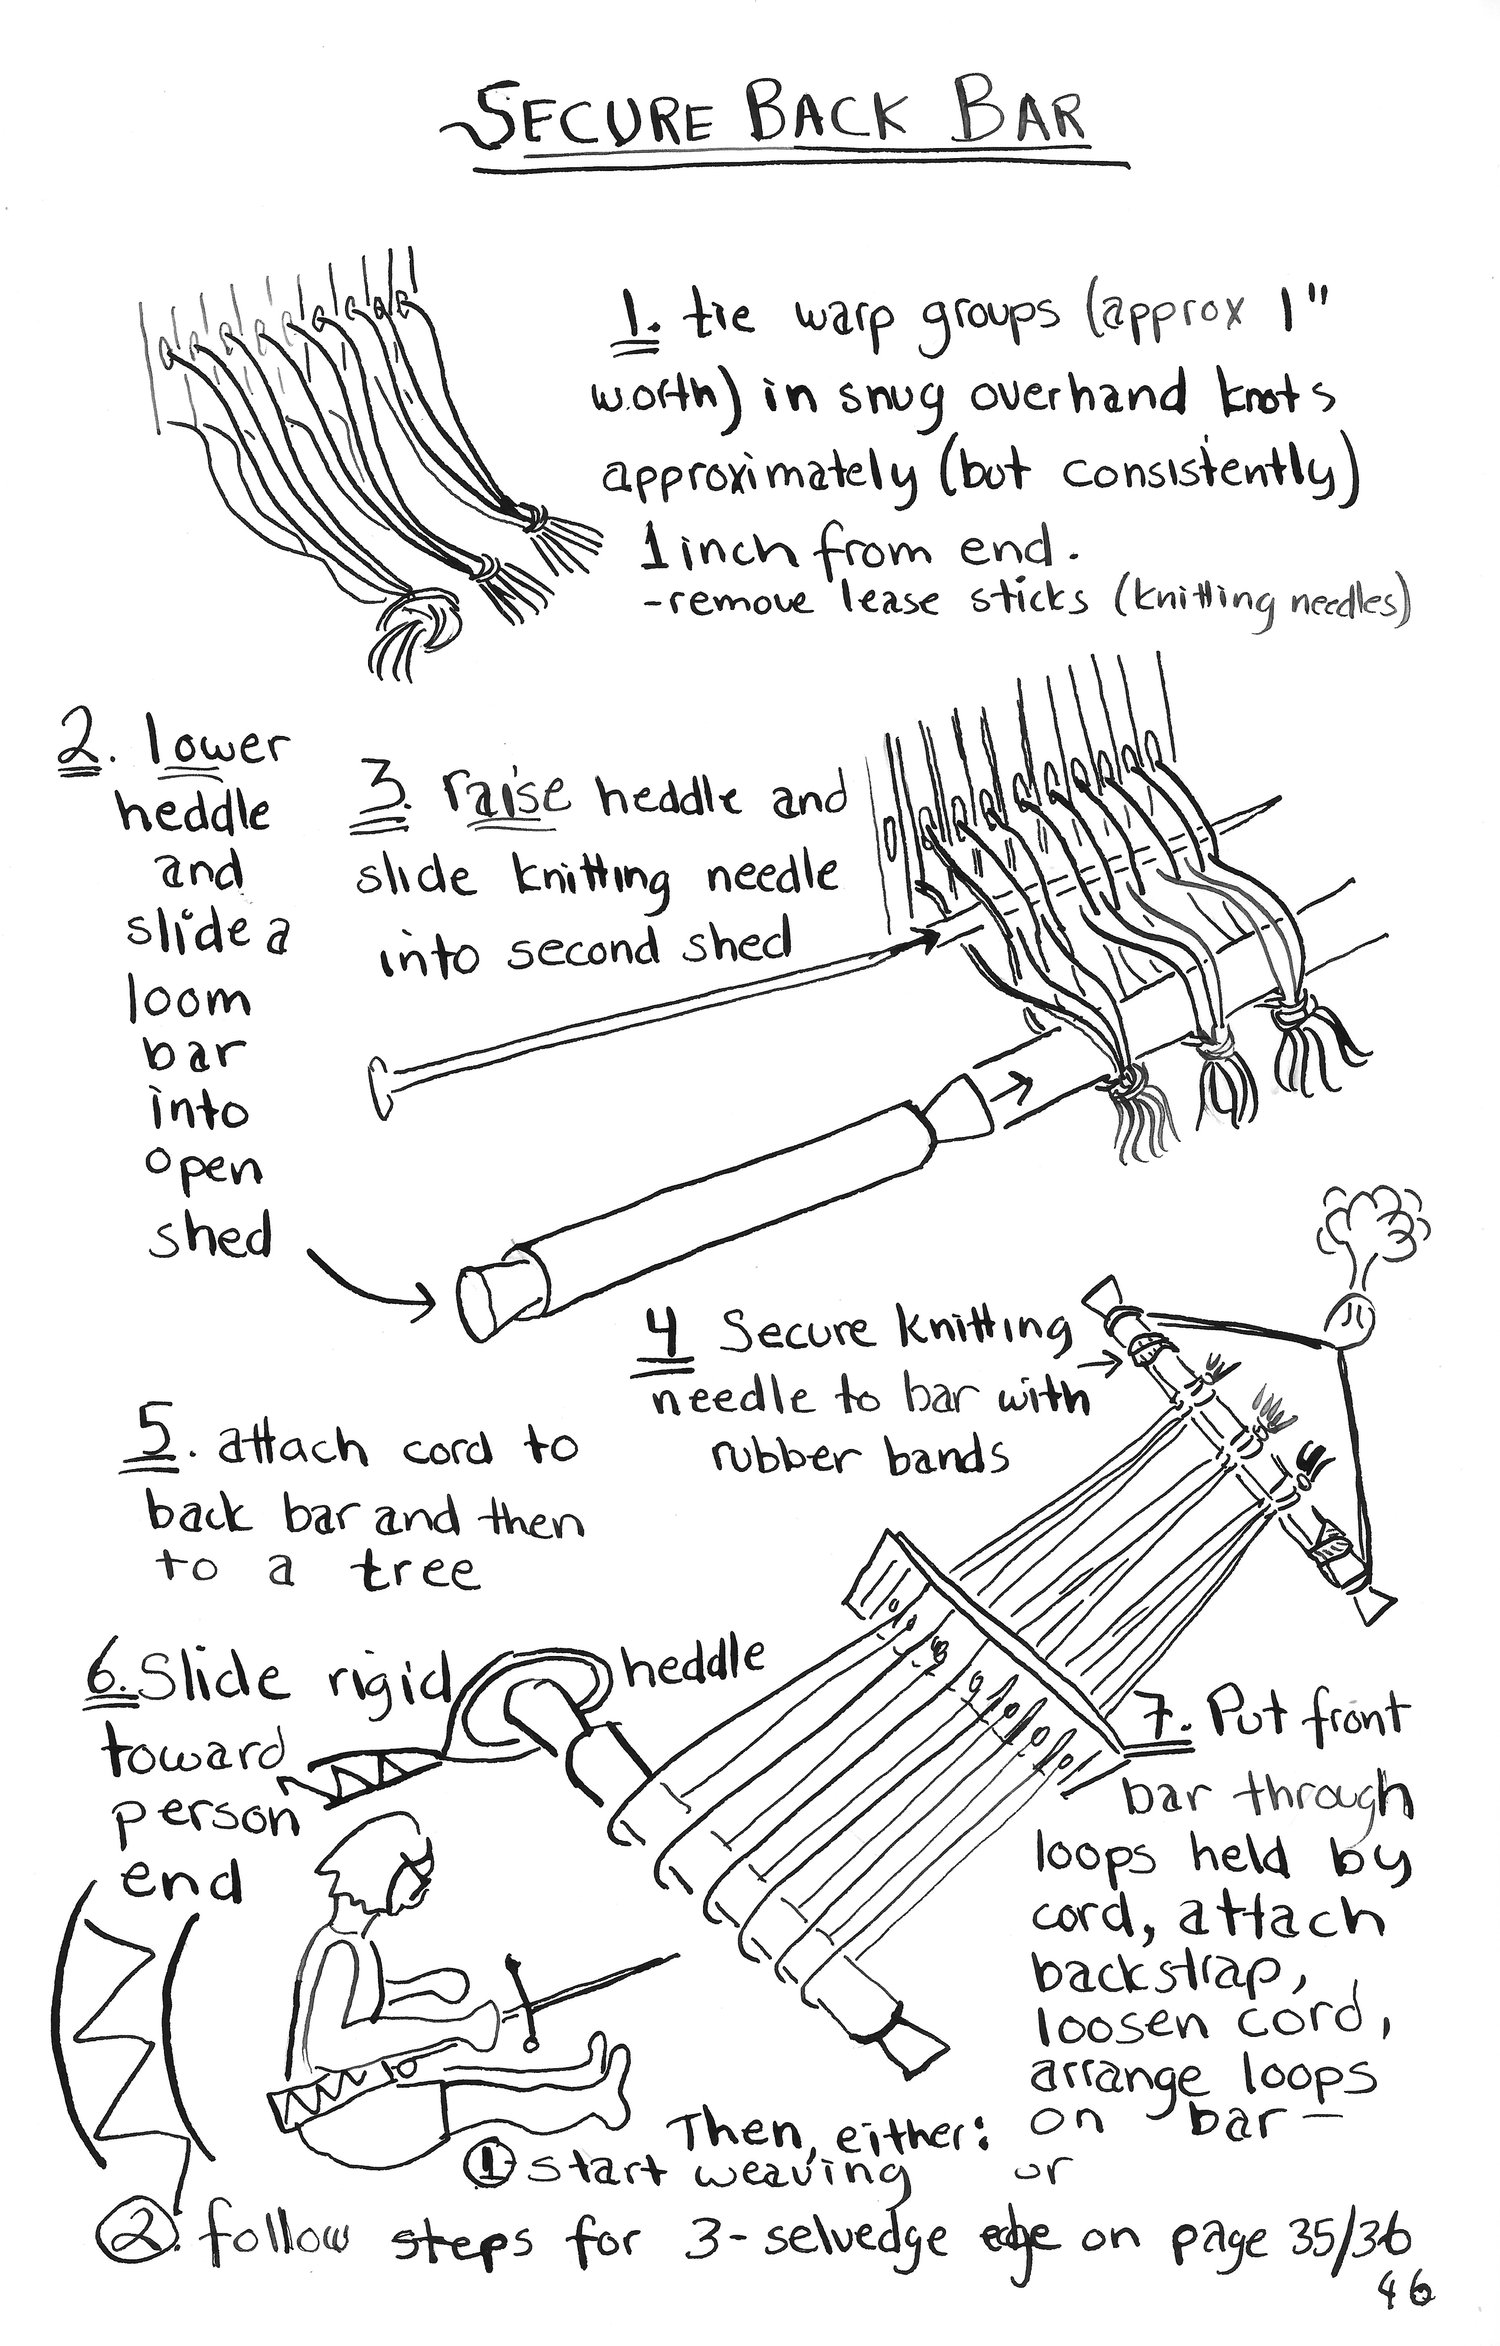 SECURE BACK BAR
1. tie warp groups (approx 1"
worth) in snug overhand knots
approximately (but consistently)
1 inch from end.
-remove lease sticks (knitting needles)
2. lower
heddle
and
slide a
loom
bar
into
open
shed
3. raise heddle and
slide knitting needle
into second shed
4 Secure knitting
needle to bar with
rubber bands
5. attach cord to
back bar and then
to a tree
6. Slide rigid heddle
toward
person
end
7. Put front
bar through
loops held by
cord, attach
backstrap,
loosen cord,
arrange loops
on bar —
Then, either:
① start weaving or
②. follow steps for 3-selvedge edge on page 35/36
46